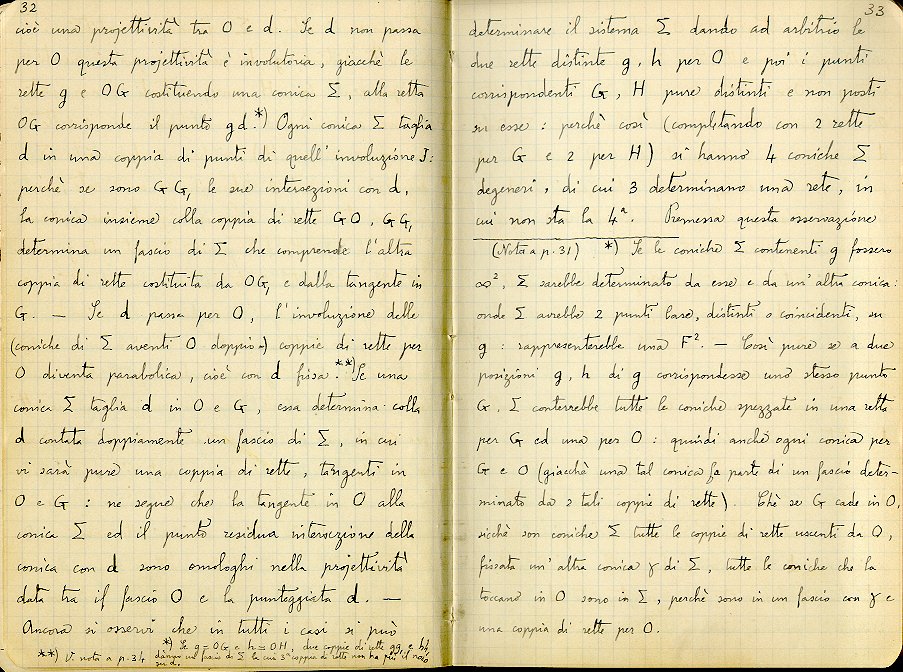 32
cioè una projettività tra O e d. Se d non passa
per O questa projettività è involutoria, giacchè le
rette g e OG costituendo una conica Σ, alla retta
OG corrisponde il punto gd.*) Ogni conica Σ taglia
d in una coppia di punti di quell'involuzione J:
perchè se sono G G₁ le sue intersezioni con d,
la conica insieme colla coppia di rette GO, GG₁
determina un fascio di Σ che comprende l'altra
coppia di rette costituita da OG₁ e dalla tangente in
G. — Se d passa per O, l'involuzione delle
(coniche di Σ aventi O doppio=) coppie di rette per
O diventa parabolica, cioè con d fissa.**) Se una
conica Σ taglia d in O e G, essa determina colla
d contata doppiamente un fascio di Σ, in cui
vi sarà pure una coppia di rette, tangenti in
O e G: ne segue che la tangente in O alla
conica Σ ed il punto residua intersezione della
conica con d sono omologhi nella projettività
data tra il fascio O e la punteggiata d. —
Ancora si osservi che in tutti i casi si può
*) Se g = OG e h = OH, due coppie di rette gg, e hh,
danno un fascio di Σ la cui 3ª coppia di rette non ha più il
su d.
**) Vi nota a p. 34
33
determinare il sistema Σ dando ad arbitrio le
due rette distinte g, h per O e poi i punti
corrispondenti G, H pure distinti e non posti
su esse: perchè così (completando con 2 rette
per G e 2 per H) si hanno 4 coniche Σ
degeneri, di cui 3 determinano una rete, in
cui non sta la 4ª. Premessa questa osservazione
(Nota a p. 31) *) Se le coniche Σ contenenti g fossero
∞², Σ sarebbe determinato da esse e da un'altra conica:
onde Σ avrebbe 2 punti base, distinti o coincidenti, su
g: rappresenterebbe una F². — Così pure se a due
posizioni g, h di g corrispondesse uno stesso punto
G, Σ conterrebbe tutte le coniche spezzate in una retta
per G ed una per O: quindi anche ogni conica per
G e O (giacchè una tal conica fa parte di un fascio deter-
minato da 2 tali coppie di rette). Chè se G cade in O,
sicchè son coniche Σ tutte le coppie di rette uscenti da O,
fissata un'altra conica γ di Σ, tutte le coniche che la
toccano in O sono in Σ, perchè sono in un fascio con γ e
una coppia di rette per O.